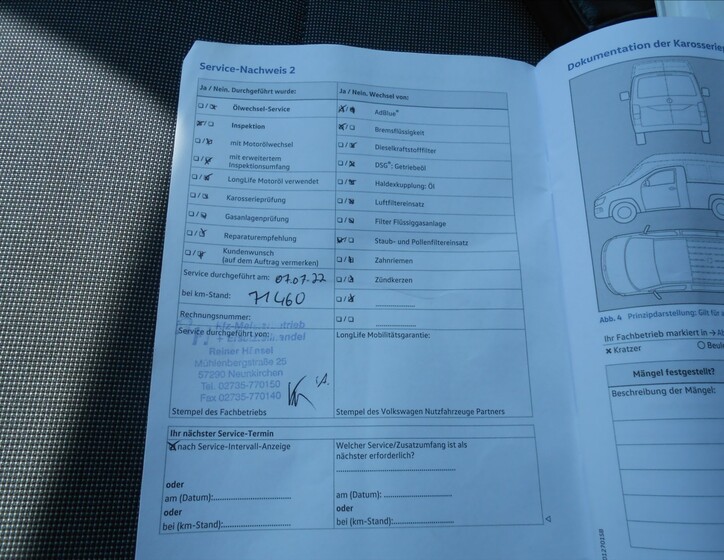 Service-Nachweis 2
Ja / Nein, Durchgeführt wurde:
Ölwechsel-Service
Inspektion
mit Motorölwechsel
mit erweitertem
Inspektionsumfang
LongLife Motoröl verwendet
Karosserieprüfung
Gasanlagenprüfung
Reparaturempfehlung
Kundenwunsch
(auf dem Auftrag vermerken)
Service durchgeführt am: 07.07.22
bei km-Stand: 71460
Rechnungsnummer:
Service durchgeführt von:
Reiner Hänsel
Mühlenbergstraße 25
57290 Neunkirchen
Tel. 02735-770150
Fax 02735-770140
i.A.
Stempel des Fachbetriebs
Ja / Nein, Wechsel von:
AdBlue®
Bremsflüssigkeit
Dieselkraftstofffilter
DSG®: Getriebeöl
Haldexkupplung: Öl
Luftfiltereinsatz
Filter Flüssiggasanlage
Staub- und Pollenfiltereinsatz
Zahnriemen
Zündkerzen
LongLife Mobilitätsgarantie:
Stempel des Volkswagen Nutzfahrzeuge Partners
Ihr nächster Service-Termin
nach Service-Intervall-Anzeige
oder
am (Datum):
oder
bei (km-Stand):
Welcher Service/Zusatzumfang ist als
nächster erforderlich?
am (Datum):
oder
bei (km-Stand):
Dokumentation der
Abb. 4 Prinzipdarstellung: Gilt für
Ihr Fachbetrieb markiert in →
x Kratzer
Mängel festgestellt?
Beschreibung der Mängel: